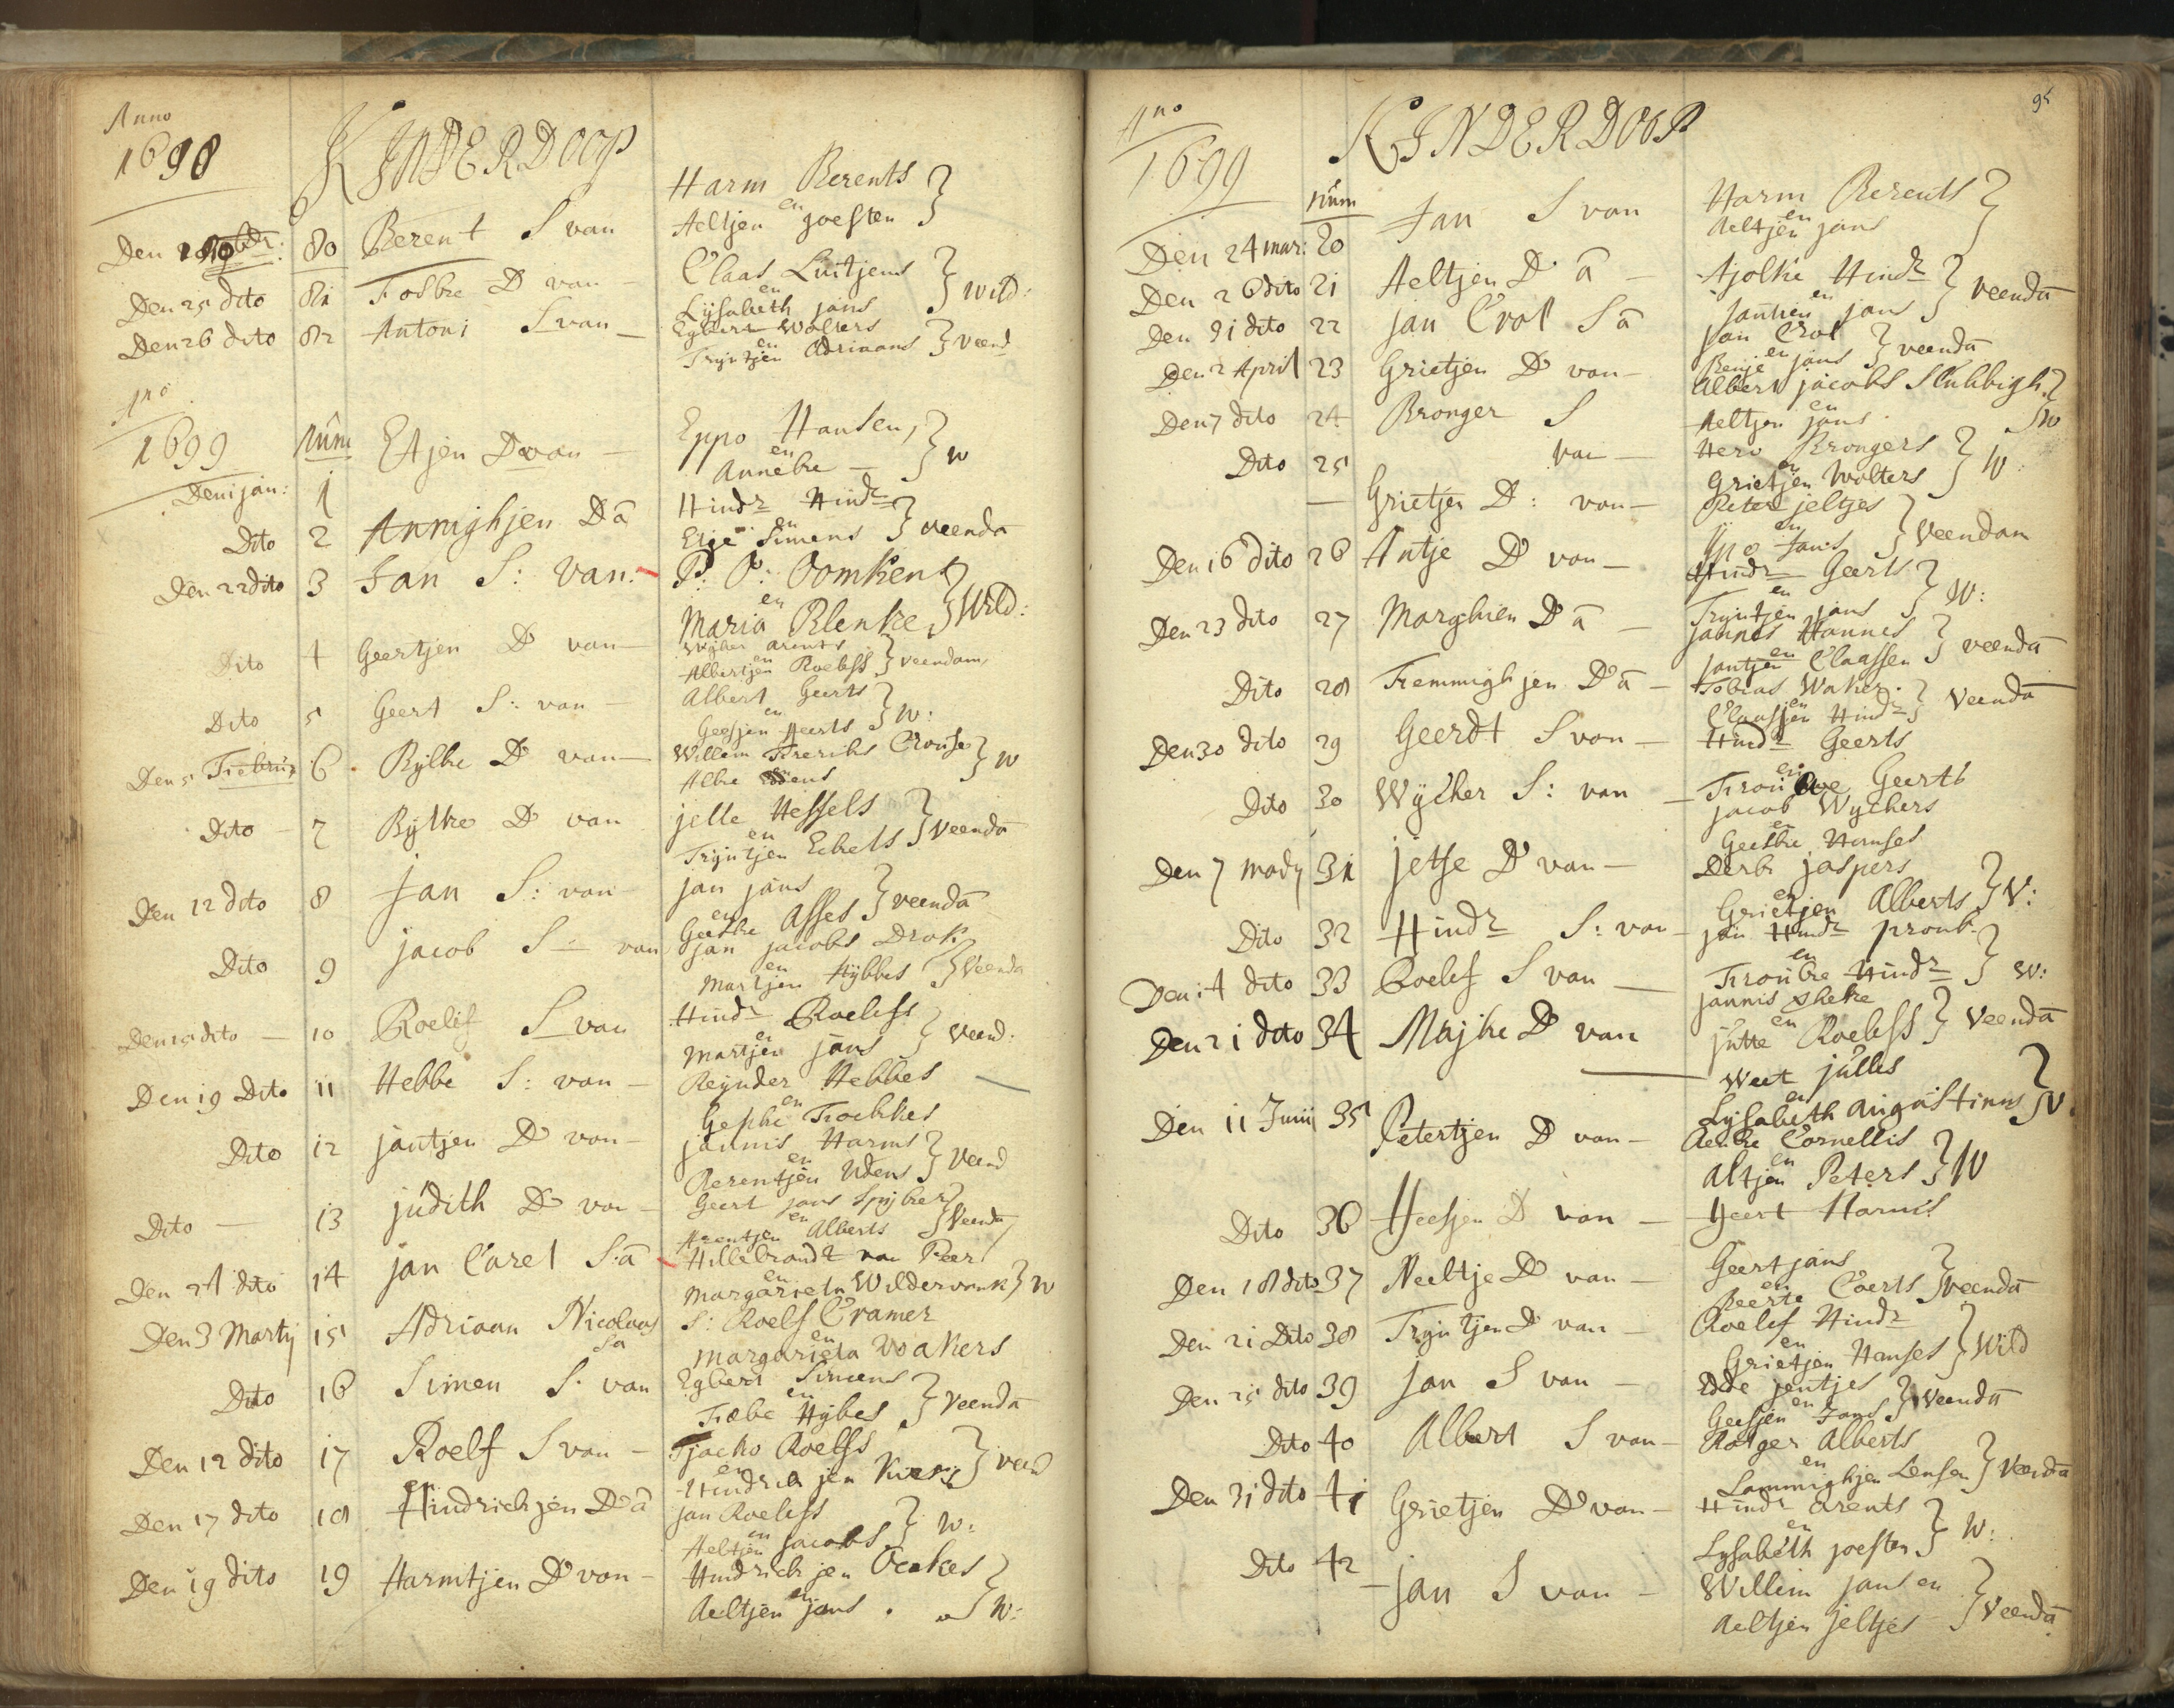 Anno
1698
KINDERDOOP
Den 80 Berent S van Harm Berents
en
Aeltjen Joesten
Den 25 dito 81 Fokke D van — Claas Luitjens
en
Lijsabeth jans } Wild:
Den 26 dito 82 Antoni S van — Egbert Wolters
en
Trijntjen Adriaans } Veend
Ano
1699
num
Den 1 jan: 1 Etjen D van — Eppo Hansen,
en
Anneke — } W
Dito 2 Annighjen D ā Hindr Hindr
en
Simens } veendā
Den 22 dito 3 Jan S: van: P: P: Oomkens
en
Maria Blenke } Wild:
Dito 4 Geertjen D van — Wijher arents
en
Albertjen Roelefs } veendam,
Dito 5 Geert S: van — Albert Geerts
en
Geesjen Geerts } W:
Den 5 Febru 6 Rijlke D van — Willem Frerichs
Albe } W
Dito — 7 Rijlke D van jelle Hessels
en
Trijntjen Eckels } Veendā
Den 12 dito 8 Jan S: van jan jans
en
Geeske Asses } veendā
Dito 9 jacob S — van jan jacobs Drok
en
Martjen Hijbbes } Veenda
Den 15 dito — 10 Roelif S van Hindr Roelefs
en
Martjen jans } Veend:
Den 19 Dito 11 Hebbe S: van — Reijnder Hebbes
en
Geske Foekkes
Dito 12 jantjen D van — jannis Harms
en
Berentjen Udens } Veend
Dito — 13 judith D van — Geert jans Spijker
en
Arentjen Alberts } Veendā
Den 24 dito 14 jan Carel S: ā Hillebrandt van Peer
en
Margarieta Wildervank } W
Den 3 Martij 15 Adriaan Nicolaas
S ā
S: Roelf Cramer
en
Margarieta Wakers
Dito 16 Simen S: van Egbert Simens
en
Hijbes } Veendā
Den 12 dito 17 Roelf S van — Tjacko Roelfs
en
Hindrickjen } veend
Den 17 dito 18 Hindrichjen D ā jan Roelefs
en
Aeltjen jacobs } W:
Den 19 dito 19 Harmtjen D van — Hindrickjen Ockes
en
Aeltjen jans } W:
Ano
1699
KINDERDOOP
95
num
Den 24 mar: 20 Jan S van Harm Berents
en
Aeltjen jans
Den 26 dito 21 Aeltjen D ā — Ajolke Hindr
en
jantien jans } veendā
Den 31 dito 22 jan Crol S ā jan Crol
en
jans } veendā
Den 2 April 23 Grietjen D van — Albert jacobs Slubbigh
en
Aeltjen jans } W
Den 7 dito 24 Bronger S
van — Hero Brongers
en
Grietjen Wolters } W:
Dito 25 — Grietjen D: van — Peter jeltjes
en
Jans } Veendam
Den 16 dito 26 Antje D van — Hindr Geerts
en
Trijntjen jans } W:
Den 23 dito 27 Marghien D ā — jannes Hannes
en
jantjen Claassen } veendā
Dito 28 Femmighjen D ā — Tobias Waker
en
Claasjen Hindr } Veendā
Den 30 dito 29 Geerdt S van — Hindr Geerts
en
Geerts
Dito 30 Wijcher S: van — jacob Wijchers
en
Geeske Hanses
Den 7 Maij 31 jetse D van — Derk jaspers
en
Grietjen Alberts } V:
Dito 32 Hindr S: van — jan Hindr pronk
en
Froukke Hindr } W:
Den 14 dito 33 Roelef S van — jannis
en
jutte Roelefs } Veendā
Den 21 dito 34 Majke D van
— Weet julles
en
Lijsabeth augustinus } V
Den 11 Junij 35 Petertjen D van — Aelke Cornellis
en
Altjen Peters } W
Dito 36 Geesjen D van — Geert Harmis
Den 18 dito 37 Neeltje D van — Geert jans
en
Beerte Coerts } veendā
Den 21 Dito 38 Trijntjen D van — Roelef Hindr
en
Grietjen Hanses } Wild
Den 25 dito 39 jan S van — Edde jentjes
en
Geesjen Jans } Veendā
Dito 40 Albert S van — Rotger Alberts
en
Lammighjen Lensen } Veendā
Den 31 dito 41 Grietjen D van — Hindr arents
en
Lijsabeth joesten } W:
Dito 42 — jan S van — Willem jansen
Aeltjen jeltjes } Veendā